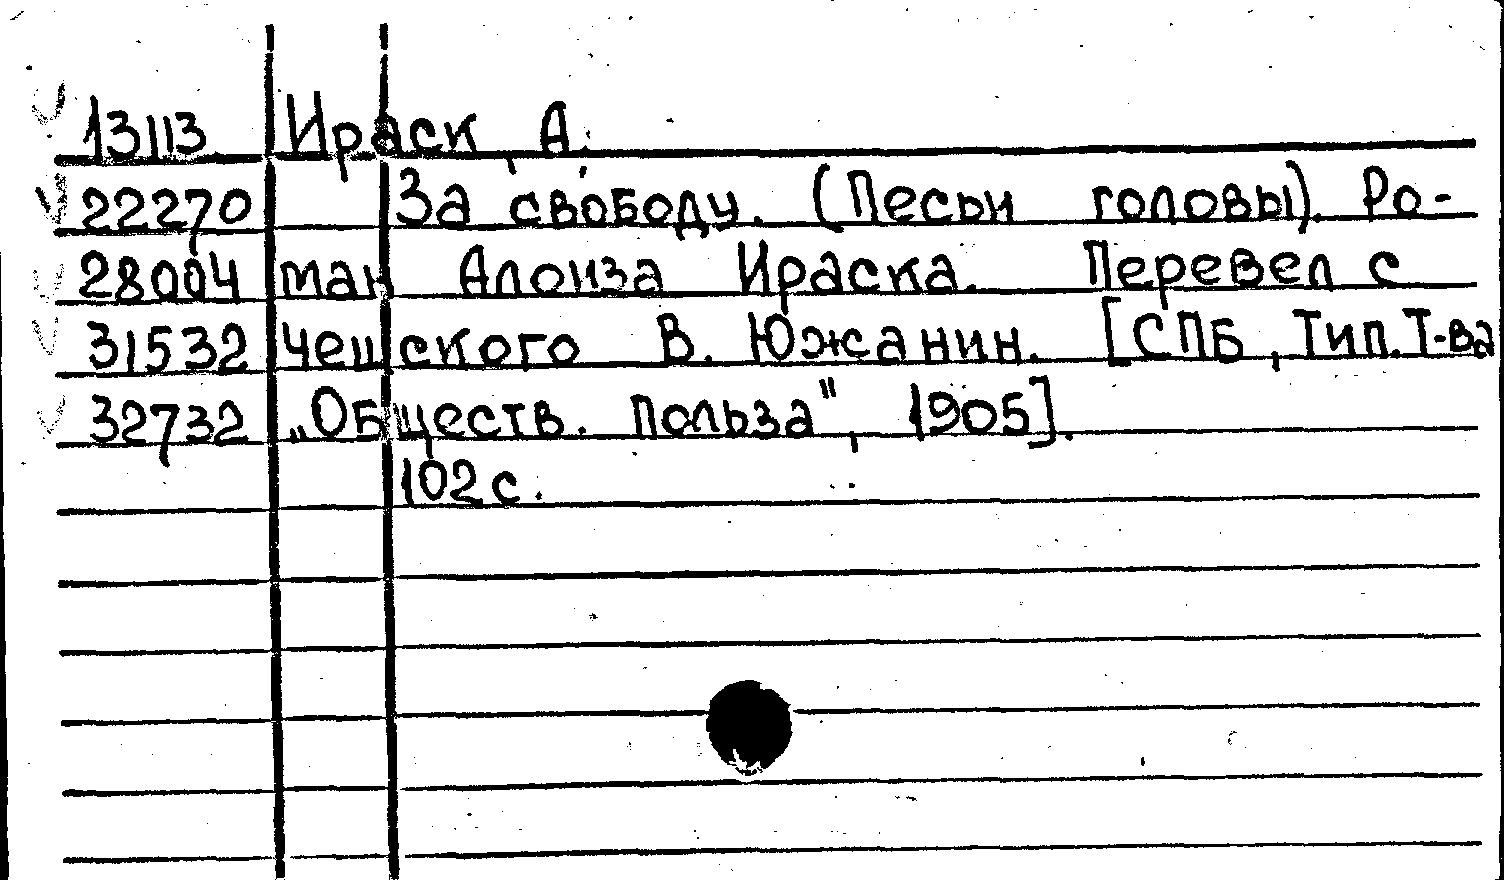 13113 Ираск, А.
22270 За свободу. (Песьи головы). Ро-
28004 ман Алоиза Ираска. Перевел с
31532 чешского В. Южанин. [СПБ, Тип. Т-ва
32732 „Обществ. польза", 1905].
102 с.